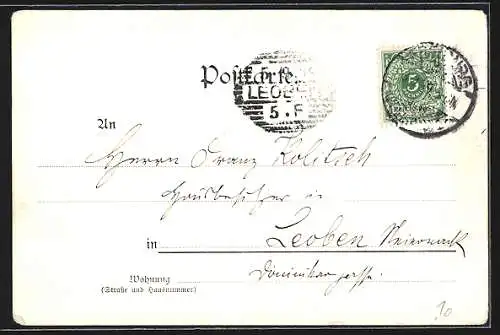 Postkarte.
LEOBEN
5
5.F
An
Herrn Franz Kolitsch
Hausbesitzer in
in Leoben Steiermark
Wohnung
(Straße und Hausnummer)
Dominikanergasse.
10